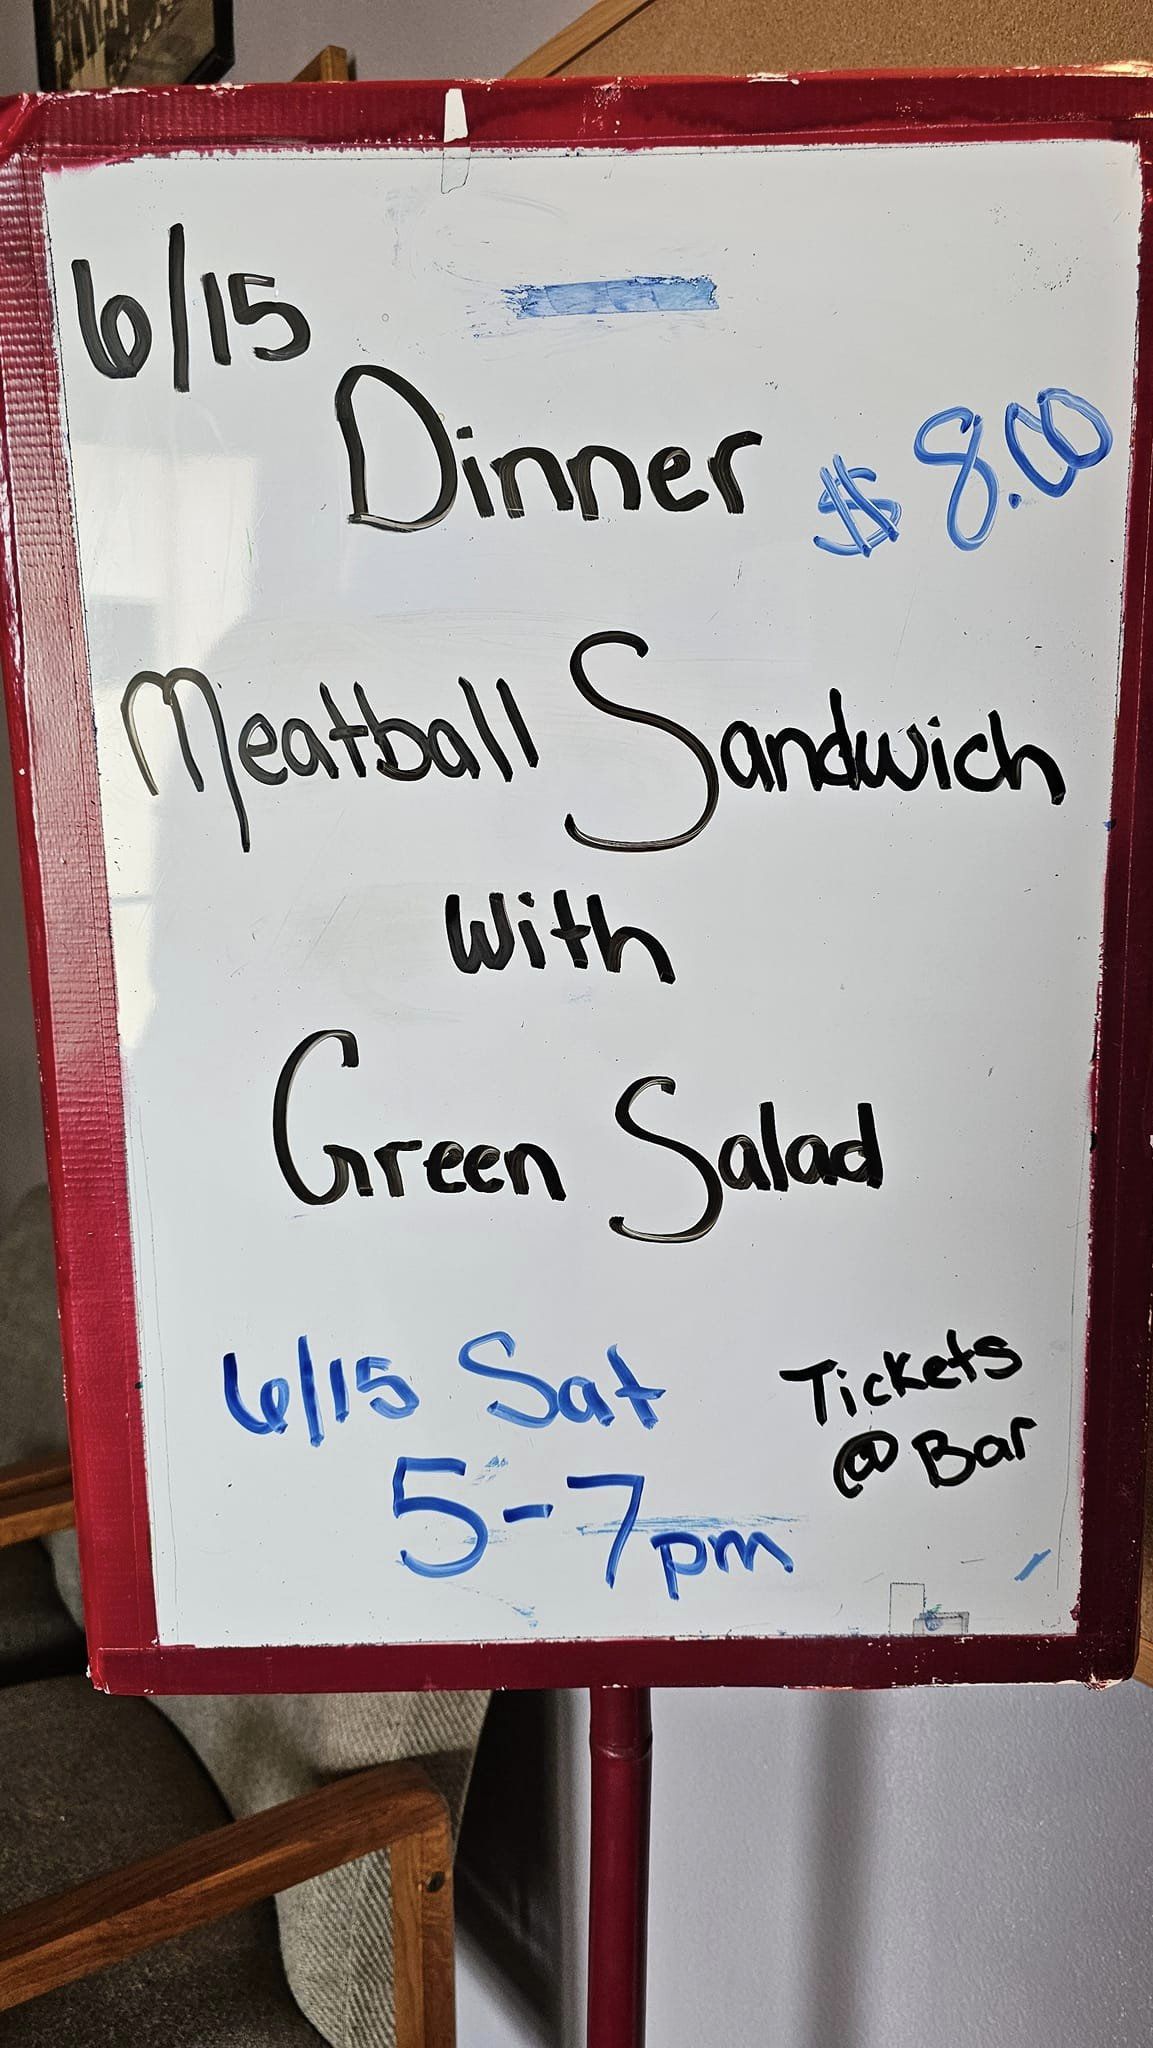 6/15
Dinner $8.00
Meatball Sandwich
With
Green Salad
6/15 Sat
5-7pm
Tickets
@ Bar